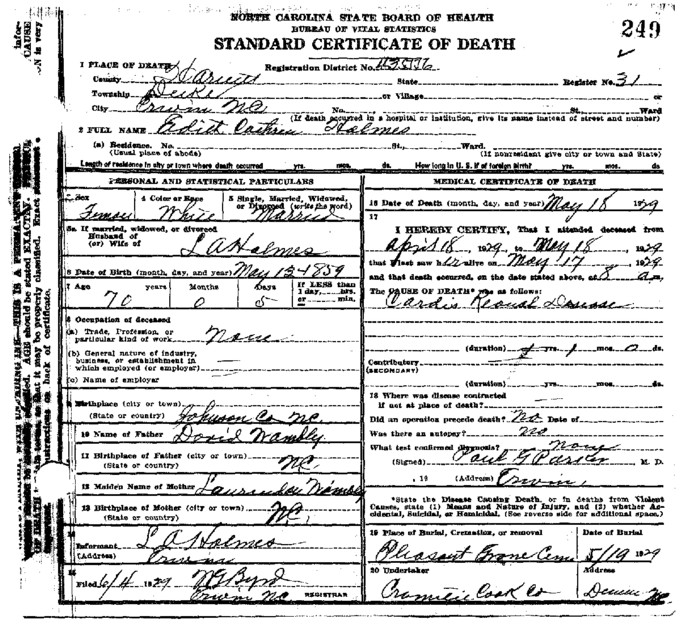 NORTH CAROLINA STATE BOARD OF HEALTH
BUREAU OF VITAL STATISTICS
STANDARD CERTIFICATE OF DEATH
249
1 PLACE OF DEATH
Registration District No.
County Harnett State Register No. 31
Township Duke or Village or
City Erwin NC No. St. Ward
(If death occurred in a hospital or institution, give its name instead of street and number)
2 FULL NAME Edith Holmes
(a) Residence. No. St., Ward.
(Usual place of abode) (If nonresident give city or town and State)
Length of residence in city or town where death occurred yrs. mos. ds. How long in U. S. if of foreign birth? yrs. mos. ds.
PERSONAL AND STATISTICAL PARTICULARS
3 Sex 4 Color or Race 5 Single, Married, Widowed, or Divorced (write the word)
White Married
5a If married, widowed, or divorced
Husband of
(or) Wife of L A Holmes
6 Date of Birth (month, day, and year) May 13-1859
7 Age years Months Days If LESS than 1 day, hrs. or min.
70 0 5
8 Occupation of deceased
(a) Trade, Profession, or particular kind of work None
(b) General nature of industry, business, or establishment in which employed (or employer)
(c) Name of employer
9 Birthplace (city or town)
(State or country) Johnson Co NC
10 Name of Father David Wambly
11 Birthplace of Father (city or town)
(State or country) NC
12 Maiden Name of Mother
13 Birthplace of Mother (city or town)
(State or country) NC
14
Informant L A Holmes
(Address) Erwin
15
Filed 6/4 1929 Byrd
Erwin NC REGISTRAR
MEDICAL CERTIFICATE OF DEATH
16 Date of Death (month, day, and year) May 18 1929
17
I HEREBY CERTIFY, That I attended deceased from
April 18, 1929 to May 18, 1929
that I last saw her alive on May 17, 1929
and that death occurred, on the date stated above, at 8 am.
The CAUSE OF DEATH* was as follows:
Cardio Disease
(duration) yrs. 1 mos. 0 ds.
Contributory
(SECONDARY)
(duration) yrs. mos. ds.
18 Where was disease contracted
if not at place of death?
Did an operation precede death? No Date of
Was there an autopsy? No
What test confirmed diagnosis? None
(Signed) Paul M. D.
, 19 (Address) Erwin
*State the Disease Causing Death, or in deaths from Violent
Causes, state (1) Means and Nature of Injury, and (2) whether Ac-
cidental, Suicidal, or Homicidal. (See reverse side for additional space.)
19 Place of Burial, Cremation, or removal Date of Burial
Pleasant Grove Cem 5/19 1929
20 Undertaker Address
Cook Co NC